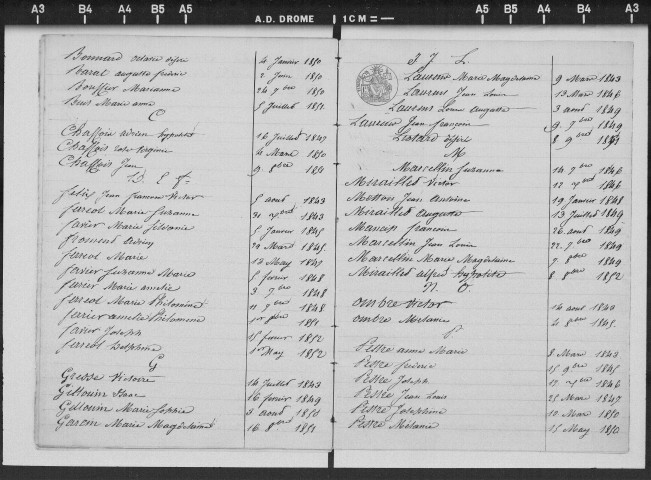 A3 B4 A4 B5 A5 A.D. DROME 1 CM = A5 B5 A4 B4 A3
Bonnard
Barat auguste frédéric 2 Juin 1850
Marianne 24 7bre 1850
Marie anne 5 Juillet 1851
C
Chaffois hypolite 16 Juillet 1847
Chaffois Virginie 4 Mars 1850
Chaffois Jean 9 8bre 1851
D. E. F.
felix Jean francois Victor 5 aout 1843
ferriol Marie Suzanne 1843
favier Marie Silvanie 5 Janvier 1845
froment 24 Mars 1845
ferriol Marie 12 May 1845
favier Suzanne Marie 5 fevrier 1848
ferrier Marie amelie 3 7bre 1848
ferriol Marie Philomène 11 7bre 1848
ferrier amelie Philomène 1851
favier Joseph 15 fevrier 1852
ferriol Delphine 1er May 1852
G
Gresse Victoire 14 Juillet 1843
Gillouin 16 fevrier 1849
Gillouin Marie Sophie 3 aout 1850
Garcin Marie Magdelaine 16 8bre 1851
I J L.
Laurens Marie Magdelaine 9 Mars 1843
Laurens Jean Louis 13 Mars 1846
Laurens Louis Auguste 3 aout 1849
Laurens Jean françois 9 7bre 1849
M
Marcellin Suzanne 14 7bre 1846
Miraillet Victor 1846
Jean Antoine 19 Janvier 1848
Miraillet Auguste 13 Juillet 1849
francois 26 aout 1849
Marcellin Jean Louis 22 7bre 1849
Marcellin Marie Magdelaine 7 8bre 1849
Miraillet alfred hypolite 8 8bre 1852
N. O.
ombre Victor 16 aout 1843
ombre Mélanie 4 8bre 1845
P
Pestre anne Marie 8 Mars 1843
Pestre frédéric 15 9bre 1845
Pestre Joseph 1846
Pestre Jean Louis 25 Mars 1847
Pestre Josephine 10 Mars 1850
Pestre Mélanie 15 May 1850